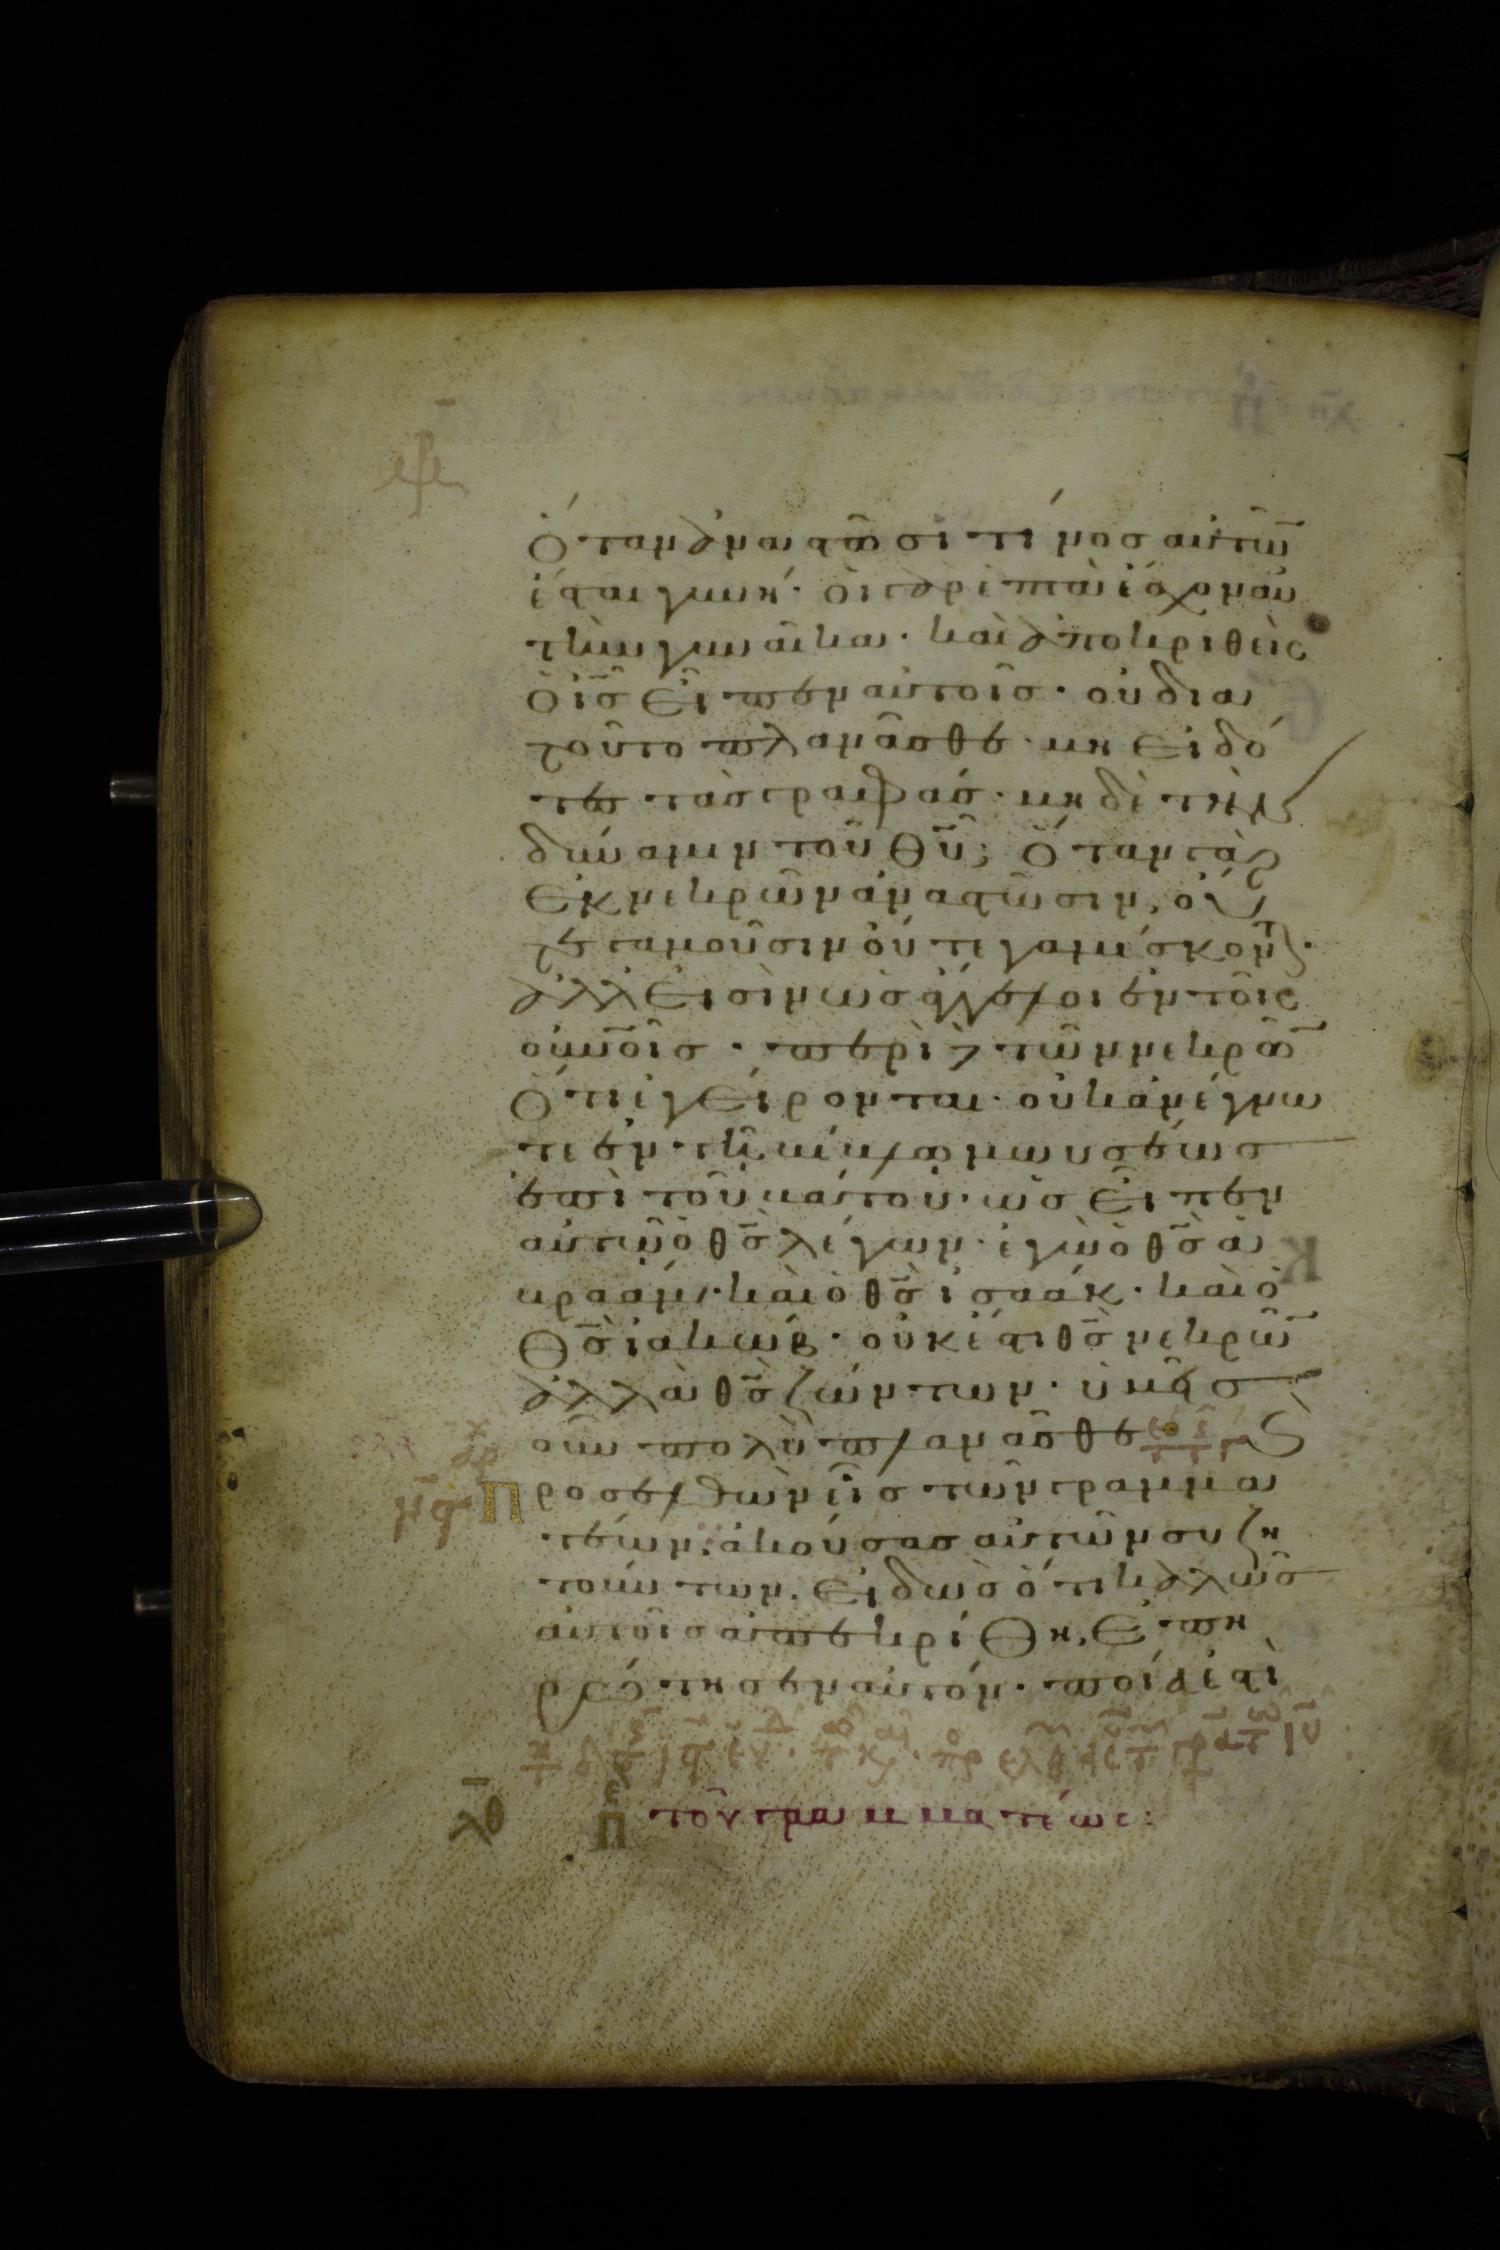 ὅταν ἀναστῶσι τίνος αὐτῶ
ἔσται γυνή· οἱ γὰρ ἑπτὰ ἔσχον αὐ
τὴν γυναῖκα· καὶ ἀποκριθεὶς
ὁ ἰς εἶπεν αὐτοῖς· οὐ δια
τοῦτο πλανᾶσθε· μὴ εἰδό
τες τὰς γραφάς· μηδὲ τὴν
δύναμιν τοῦ θυ; ὅταν γὰρ
ἐκ νεκρῶν ἀναστῶσιν, οὔ
τε γαμοῦσιν οὔτε γαμίσκοντ·
ἀλλ εἰσὶν ὡς ἄγγελοι ἐν τοῖς
οὐνοῖς· περὶ δὲ τῶν νεκρῶ
ὅτι ἐγείρονται· οὐκ ἀνέγνω
τε ἐν τῆ βίβλω μωυσέως
ἐπὶ τοῦ βάτου· ὡς εἶπεν
αὐτῶ ὁ θς λέγων· ἐγὼ ὁ θς ἁ
βραάμ· καὶ ὁ θς ἰσαάκ· καὶ ὁ
θς ἰακώβ· οὐκ ἔστι θς νεκρῶ
ἀλλὰ θς ζώντων· ὑμεῖς
οὖν πολὺ πλανᾶσθε
Προσελθὼν εἷς τῶν γραμμα
τέων· ἀκούσας αὐτῶν συζη
τούντων· εἰδὼς ὅτι καλῶς
αὐτοῖς ἀπεκρίθη, ἐπη
ρώτησεν αὐτόν· ποία ἐστὶ
λθ Πε τοῦ γραμματέως: